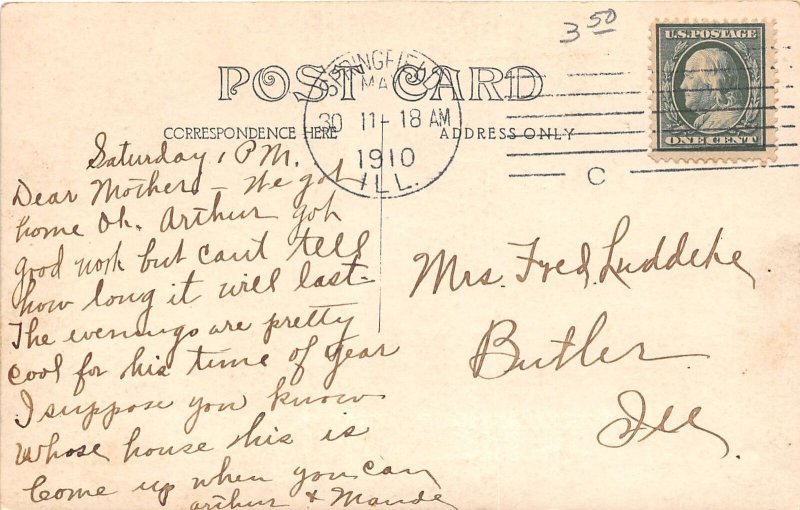 3 50
U.S. POSTAGE
ONE CENT
POST CARD
CORRESPONDENCE HERE
ADDRESS ONLY
SPRINGFIELD
MAY
30 11-18 AM
1910
ILL.
C
Saturday, PM.
Dear Mother - We got
home Ok. Arthur got
good work but can't tell
how long it will last
The evenings are pretty
cool for this time of year
I suppose you know
Whose house this is
Come up when you can
Arthur & Maude
Mrs. Fred. Luddeke
Butler
Ill,